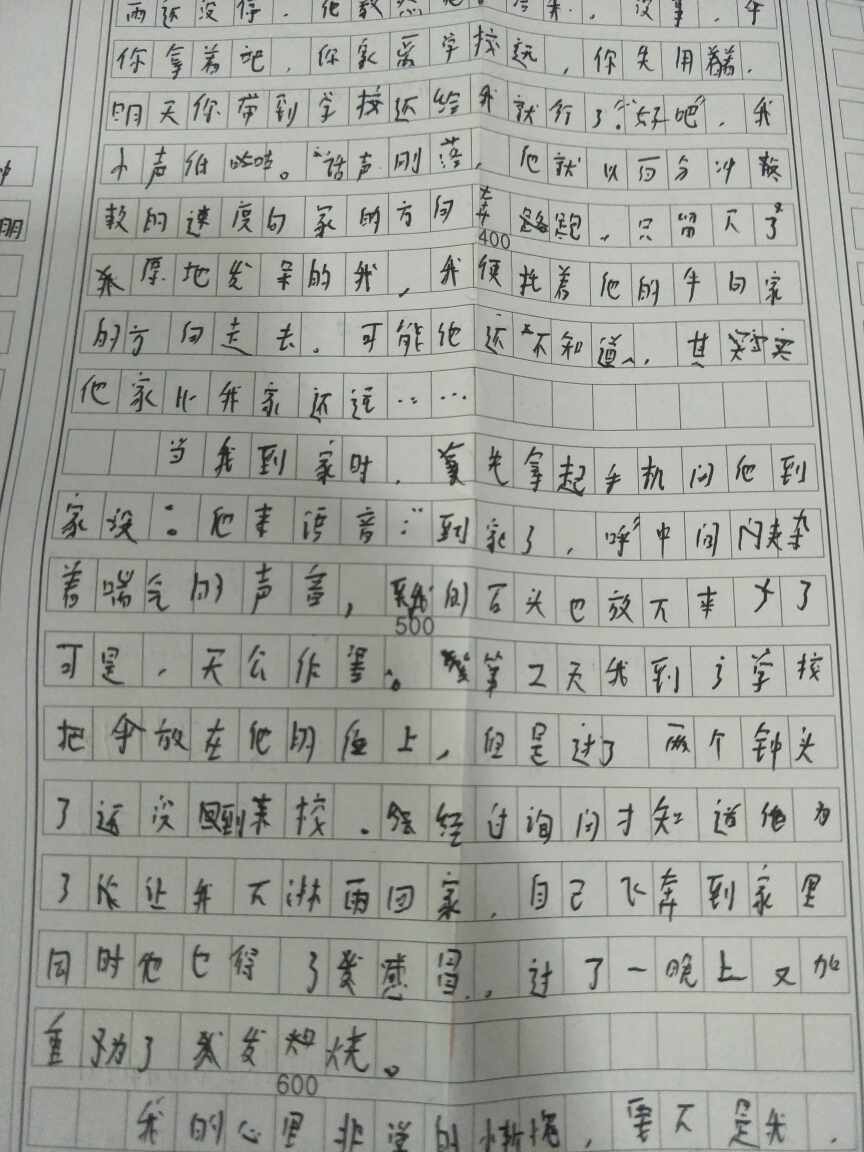 雨还没停,他
你拿着吧,你家离学校远,你先用着,
明天你带到学校还给我就行了。”“好吧”,我
小声低咕咕。“话声刚落,他就以百分冲
的速度向家的方向奔跑,只留下了
400
原地发呆的我,我便托着他的伞向家
的方向走去。可能他还不知道,其实
他家比我家还远……
当我到家时,首先拿起手机问他到
家没:。他来语音:“到家了,呼”中间夹杂
着喘气的声音,我的石头也放下来了
500
可是,天公作。第二天我到了学校
把伞放在他的位上,但是过了两个钟头
了还没回到来校。经过询问才知道他为
了能让我不淋雨回家,自己飞奔到家里
同时他也得了感冒,过了一晚上又加
重为了发烧。
600
我的心里非常的惭愧,要不是我,